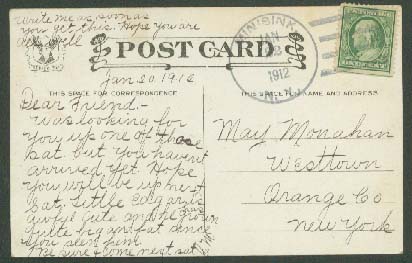 Write me as soon as
you get this. Hope you are
all well
POST CARD
JAN
1912
N.Y.
Jan 30 1912
THIS SPACE FOR CORRESPONDENCE
THIS SPACE FOR NAME AND ADDRESS
Dear Friend.-
was looking for
you up one of these
sat. but you havent
arrived yet. Hope
you will be up next
Sat. Little Edgar is
awful cute and has grown
quite big and fat since
you seen him.
Be sure & come next sat.
May Monahan
Westtown
Orange Co
New York